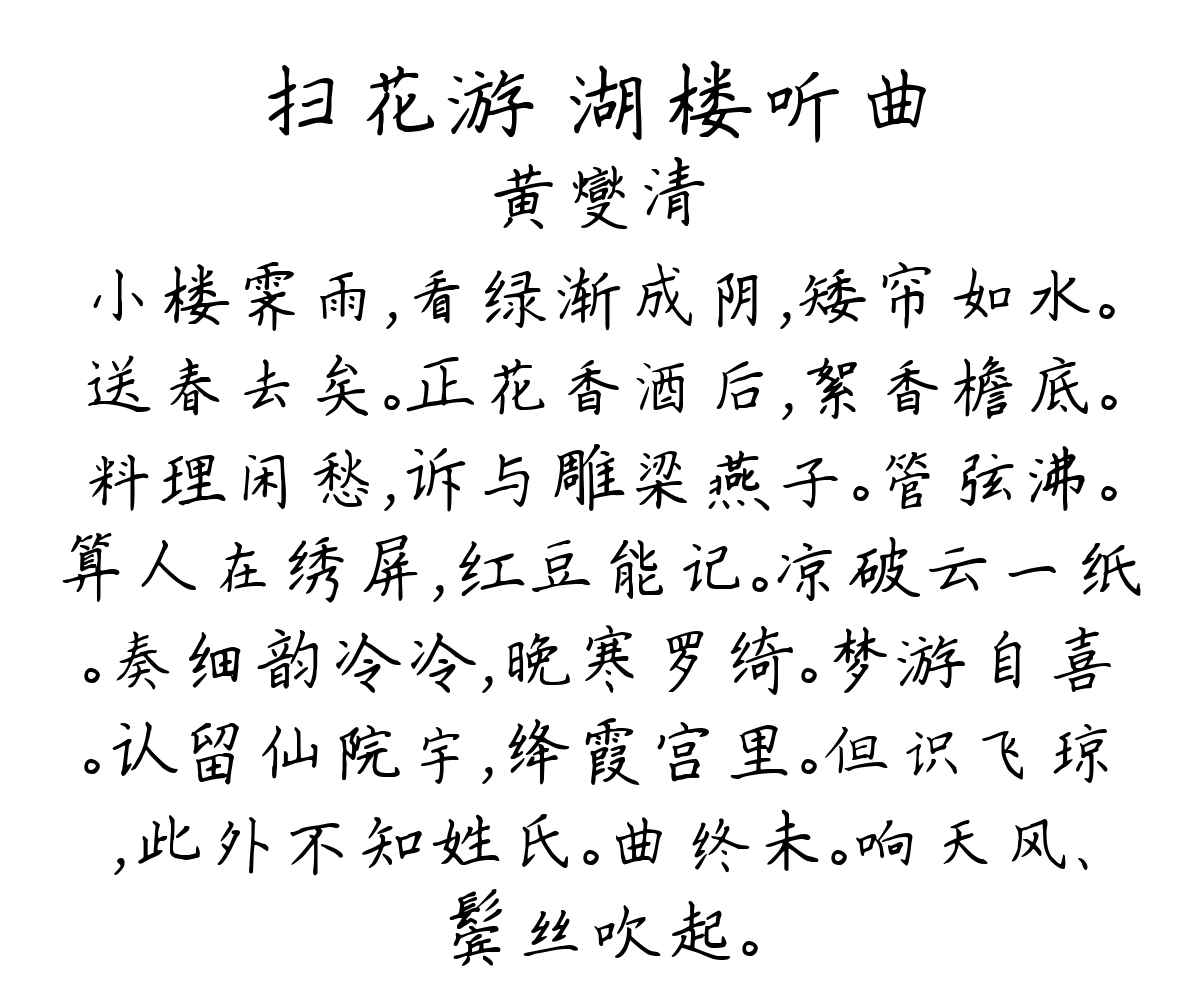 扫花游 湖楼听曲
黄燮清
小楼霁雨,看绿渐成阴,矮帘如水。
送春去矣。正花香酒后,絮香檐底。
料理闲愁,诉与雕梁燕子。管弦沸。
算人在绣屏,红豆能记。凉破云一纸
。奏细韵冷冷,晚寒罗绮。梦游自喜
。认留仙院宇,绛霞宫里。但识飞琼
,此外不知姓氏。曲终未。响天风、
鬓丝吹起。